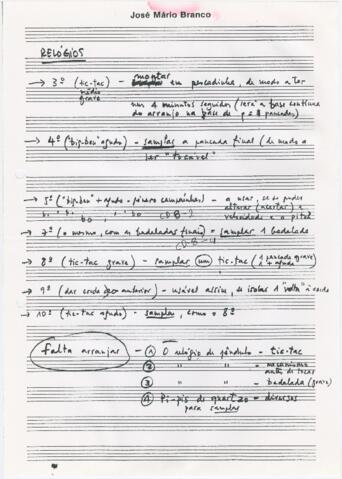 José Mário Branco
RELÓGIOS
→ 3º (tic-tac) - montar em pescadinha, de modo a ter
médio
grave
uns 4 minutos seguidos (será a base contínua
do arranjo na base de
→ 4º ("big-ben" agudo) - samplar a pancada final (de modo a
ser "tocável"
→ 5º ("big-ben" + agudo - género campainhas) - a usar, se do puder
alterar (acertar) a
velocidade e o pitch
→ 7º (o mesmo, com as badaladas finais) = samplar 1 badalada
→ 8º (tic-tac grave) - samplar um tic-tac (1 pancada grave)
1 + aguda
→ 9º (das cordas anterior) - usável assim, se isolar 1 "volta"
→ 10º (tic-tac agudo) - samplar, como o 8º
falta arranjar - 1 O relógio de pêndulo - tic-tac
2 " " - mecanismo
antes de tocar
3 " " - badalada (grave)
4 Pi-pis de quartzo = diversos
para samplar